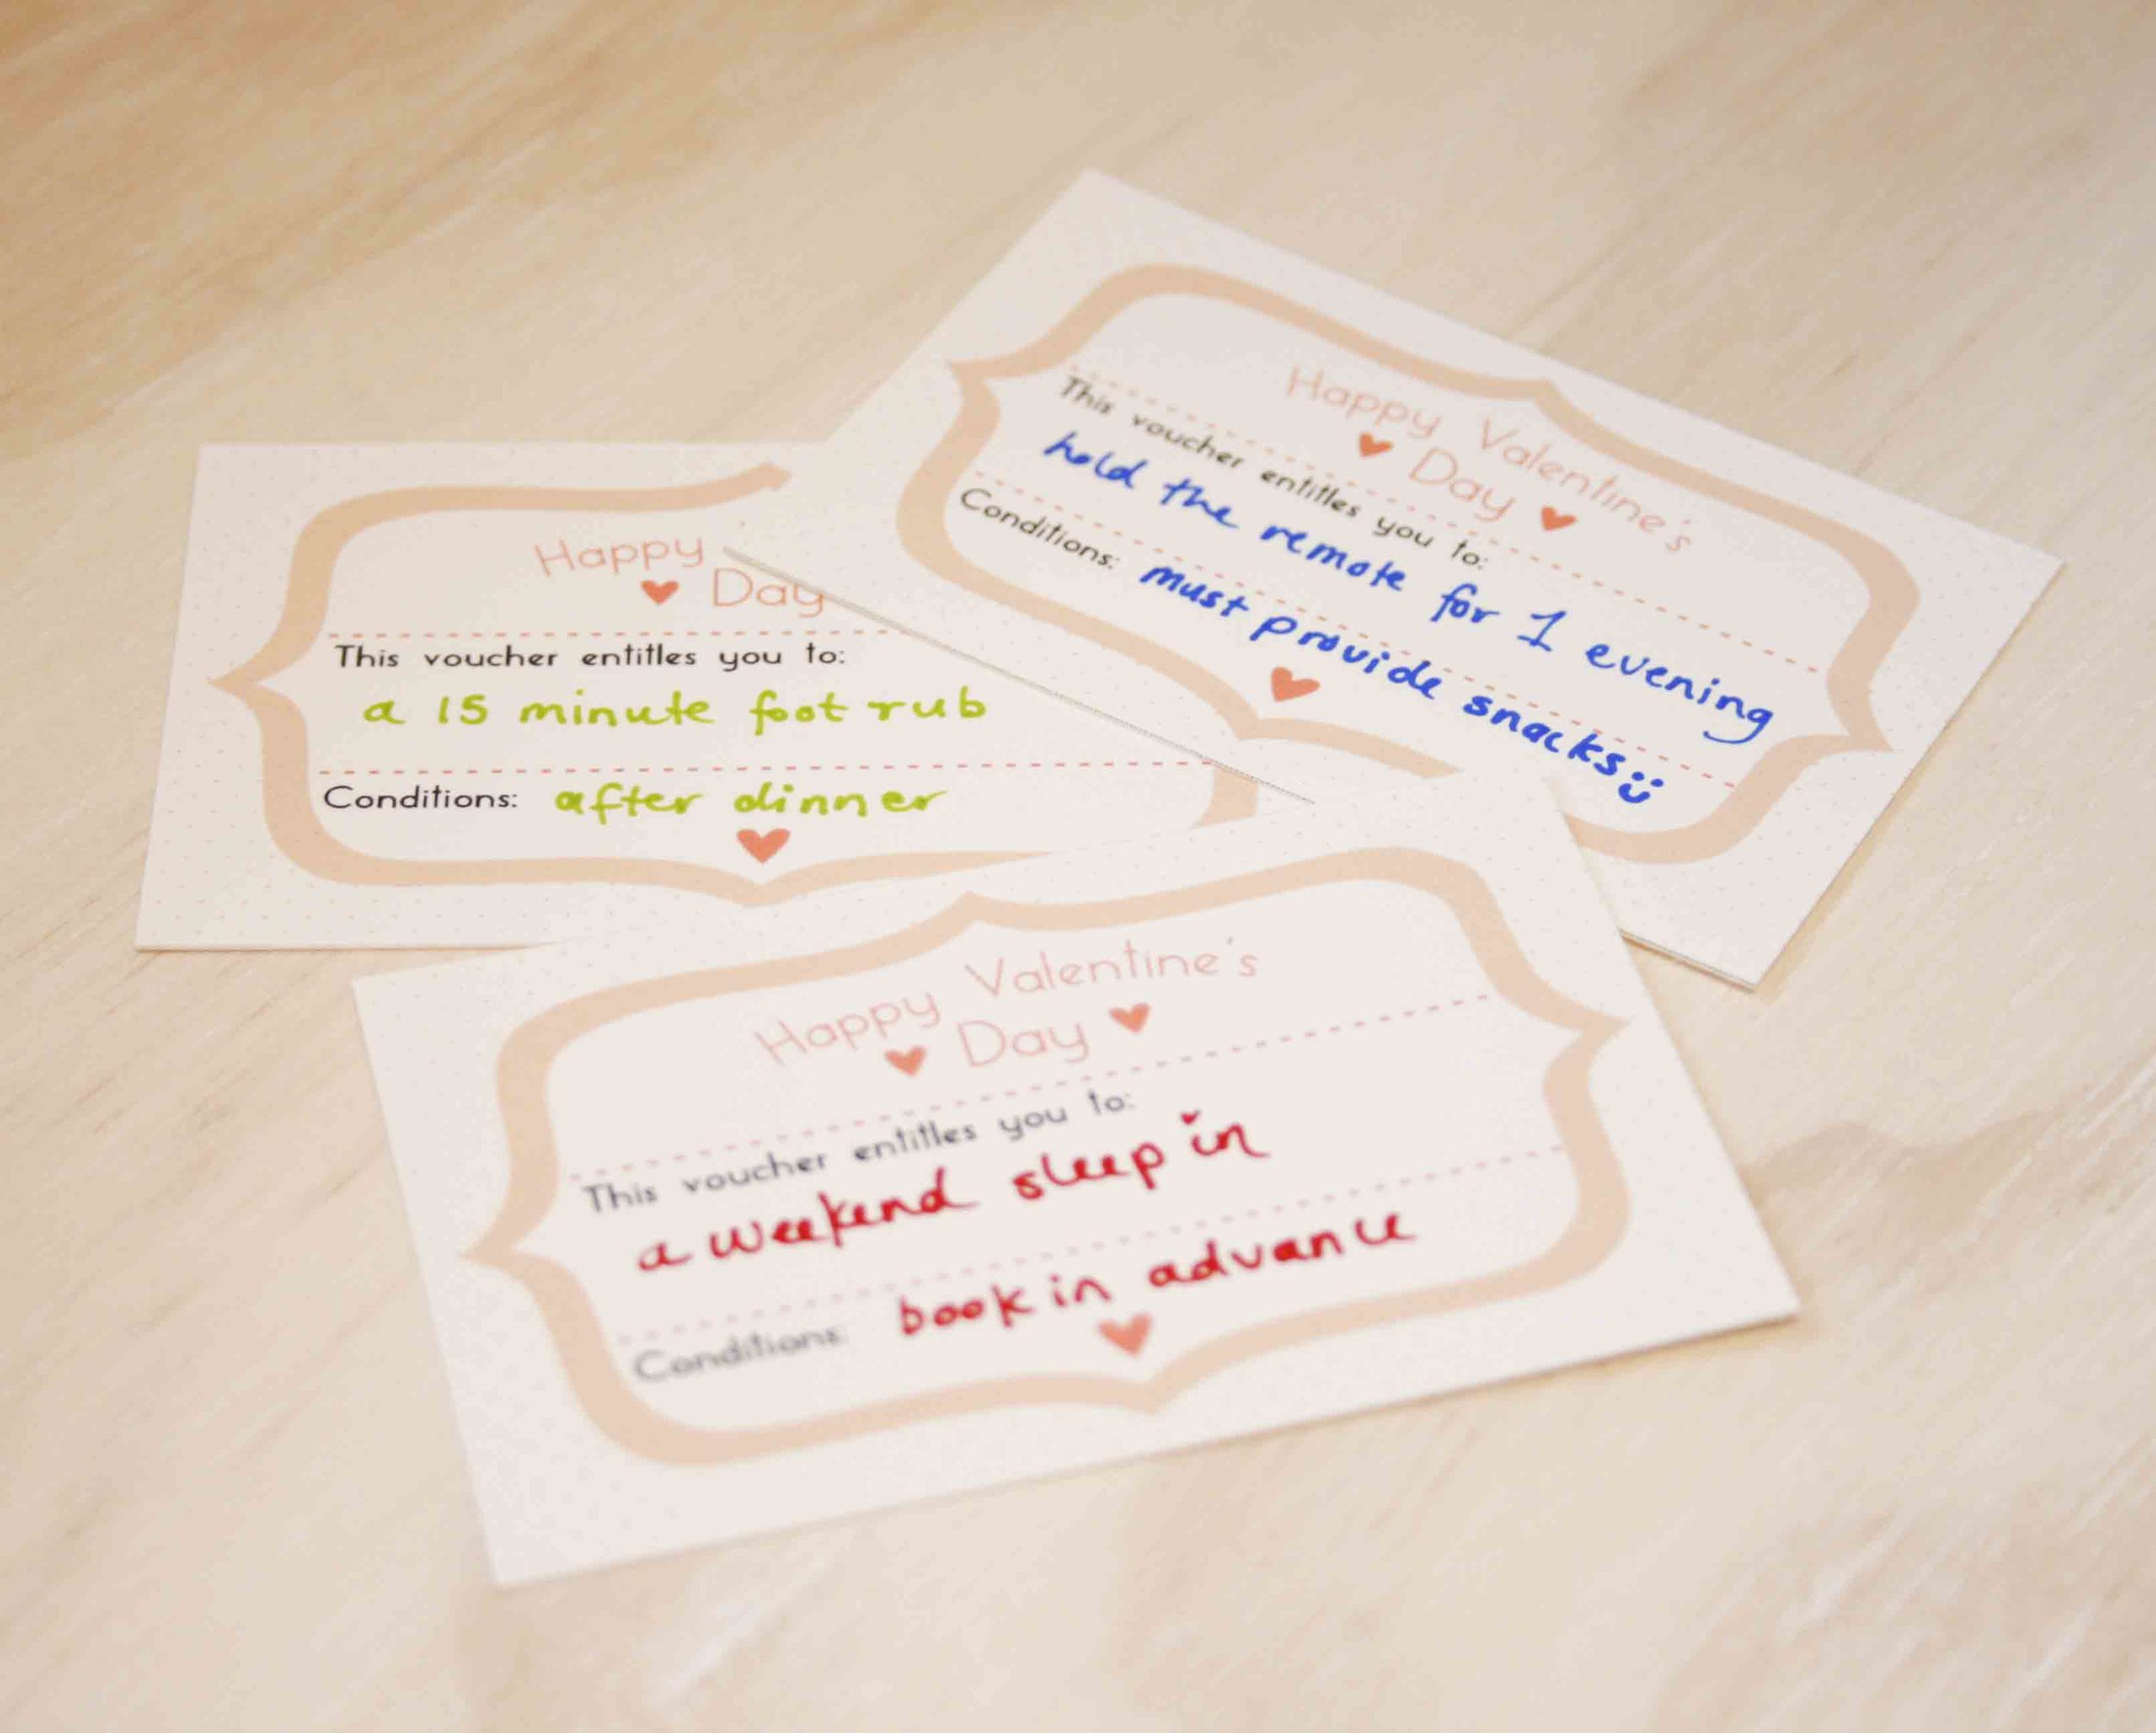 Happy
Day
This voucher entitles you to:
a 15 minute foot rub
Conditions: after dinner
Happy Valentine's
Day
This voucher entitles you to:
hold the remote for 1 evening
Conditions: must provide snacks
Happy Valentine's
Day
This voucher entitles you to:
a weekend sleep in
Conditions: book in advance